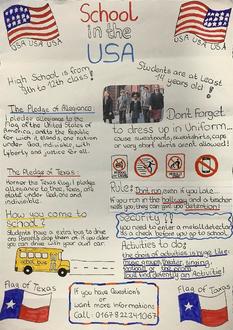 School
in the
USA
USA USA USA
USA USA USA
High School is from
9th to 12th class!
Students are at least
14 years old!
The Pledge of Allegiance:
I pledge allegiance to the
flag of the United States of
America, and to the Republic
for which it stands, one nation
under God, indivisible, with
liberty and justice for all.
Dont forget
to dress up in Uniform...
cause sweatpants, sweatshirts, caps
or very short skirts arent allowed!
The Pledge of Texas:
Honor the Texas flag; I pledge
allegiance to thee, Texas, one
state under God, one and
indivisible.
Rules: Dont run even if you late...
If you run in the hallway and a teacher
see you, they can give you detention!
How you come to
school?
Students have a extra bus to drive
or parents drop them or if you older
you can drive with your own car.
SCHOOL BUS
Security!!
You need to enter a metal detector
to check before you go to school
Activities to do:
the choir of activities is huge like:
Flag of Texas
If you have Question's
or
want more informations
Call: 0167 822 24 1067
Flag of Texas